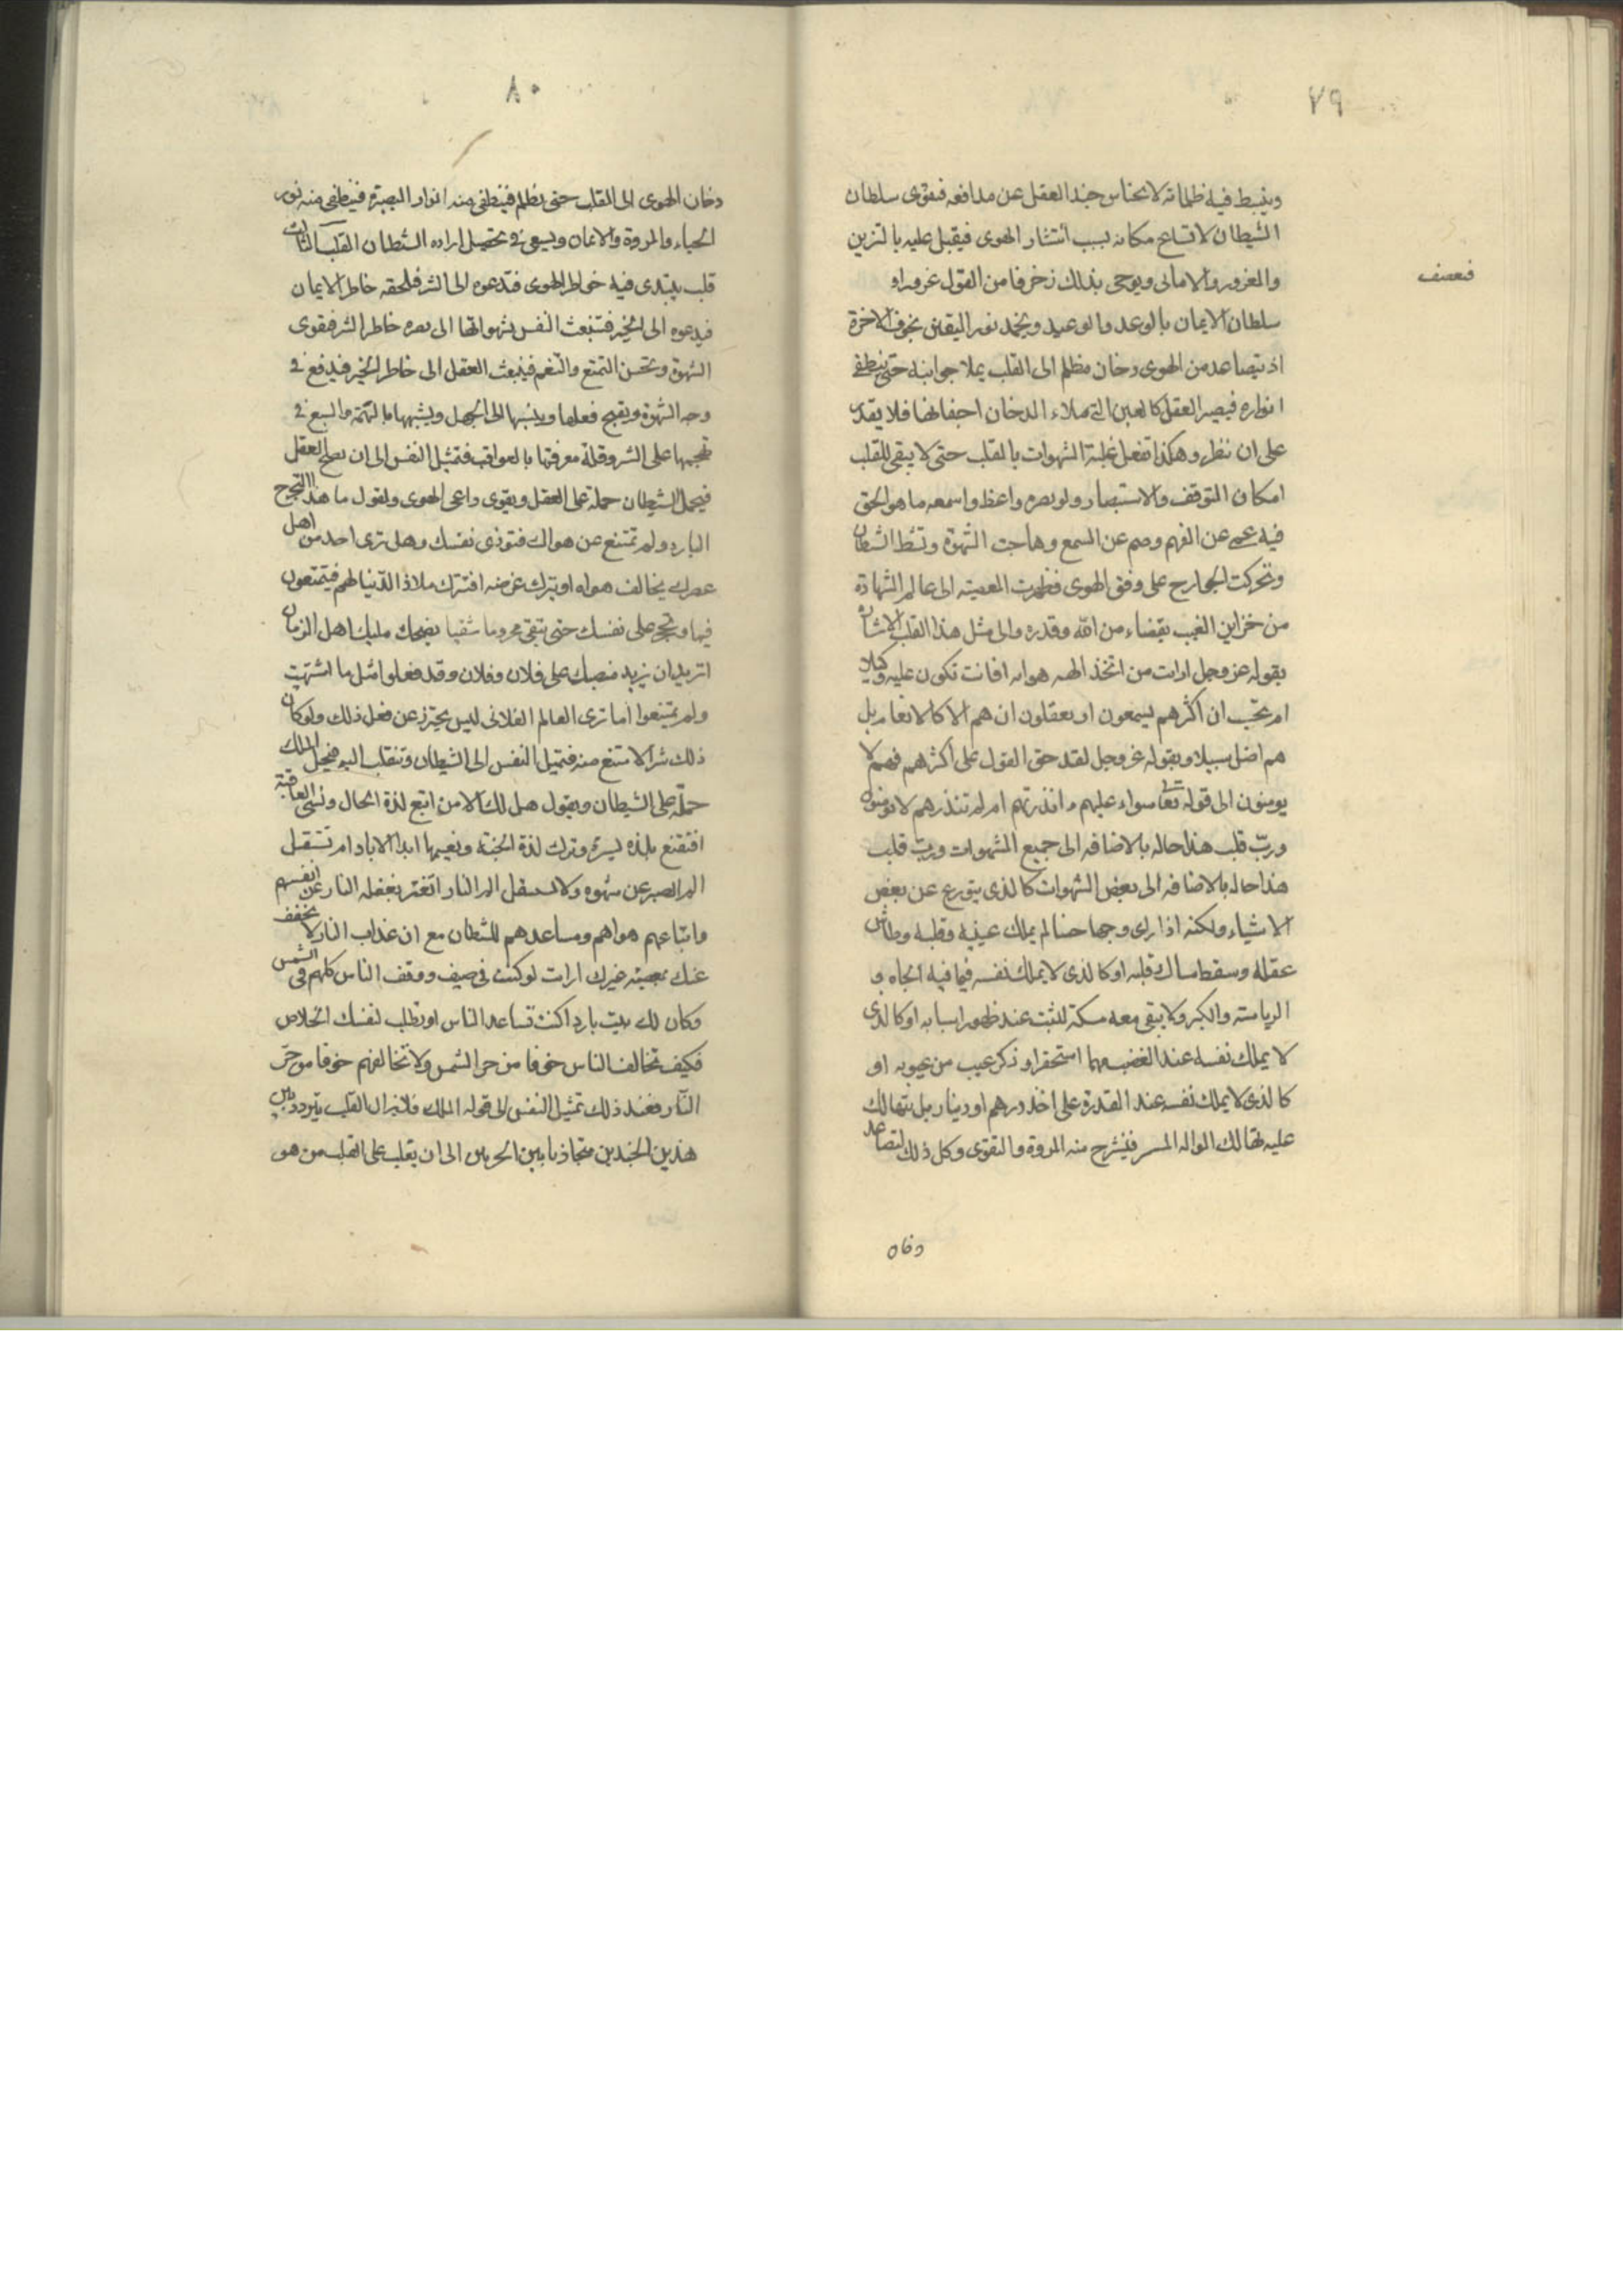 ٧٩
وينبسط فيه ظلماته لانخناس جند العقل عن مدافعه فيقوى سلطان
الشيطان لاتساع مكانه بسبب انتشار الهوى فيقبل عليه بالتزين
والغرور والامانى ويوحى بذلك زخرفا من القول غرورا و
فيضعف
سلطان الايمان بالوعد والوعيد ويخمد نور اليقين بخوف الاخرة
اذ يتصاعد من الهوى دخان مظلم الى القلب يملا جوانبه حتى ينطفى
انواره فيصير العقل كالعين التى ملاء الدخان اجفانها فلا يقدر
على ان ينظر وهكذا تفعل غلبة الشهوات بالقلب حتى لا يبقى للقلب
امكان التوقف والاستبصار ولو بصره واعظ واسمعه ما هو الحق
فيه عمى عن الفهم وصم عن السمع وهاجت الشهوة ونشط الشيطان
وتحركت الجوارح على وفق الهوى فظهرت المعصيته الى عالم الشهادة
من خزاين الغيب بقضاء من الله وقدره والى مثل هذا القلب الاشارة
بقوله عز وجل ارايت من اتخذ الهه هواه افانت تكون عليه وكيلا
ام تحسب ان اكثرهم يسمعون او يعقلون ان هم الا كالانعام بل
هم اضل سبيلا وبقوله عز وجل لقد حق القول على اكثرهم فهم لا
يومنون الى قوله تعا سواء عليهم ءانذرتهم ام لم تنذرهم لا يومنون
وربّ قلب هذا حاله بالاضافه الى جميع الشهوات وربّ قلب
هذا حاله بالاضافه الى بعض الشهوات كالذى يتورع عن بعض
الاشياء ولكنه اذا راى وجها حسنا لم يملك عينيه وقلبه وطاش
عقله وسقط مساك قلبه او كالذى لا يملك نفسه فيما فيه الجاه و
الرياسته والكبر ولا يبقى معه مسكة للثبت عند ظهور اسبابه او كالذى
لا يملك نفسه عند الغضب مهما استحقر او ذكر عيب من عيوبه او
كالذى لا يملك نفسه عند القدرة على اخذ درهم او دينار بل يتهالك
عليه تهالك الواله المستهتر فينشرح منه المروة والتقوى وكل ذلك لتصاعد
دخان
٨٠
دخان الهوى الى القلب حتى يظلم فينطفى منه انوار البصيرة فينطفى منه نور
الحياء والمروة والايمان ويسعى فى تحصيل اراده الشيطان القلب الثالث
قلب يبتدى فيه خواطر الهوى فتدعوه الى الشر فيلحقه خاطر الايمان
فيدعوه الى الخير فتنبعث النفس بشهواتها الى نصره خاطر الشر فيقوى
الشهوة ويحسن التمتع والتنعم فينبعث العقل الى خاطر الخير فيدفع فى
وجه الشهوة ويقبح فعلها وينسبها الى الجهل ويشبهها بالبهيمة والسبع فى
تهجمها على الشر وقلة معرفتها بالعواقب فتميل النفس الى ان نصح العقل
فيحمل الشيطان حملة على العقل ويقوى داعى الهوى ويقول ما هذا التحرج
البارد ولم تمتنع عن هواك فتوذى نفسك وهل ترى احد من اهل
عصرك يخالف هواه او يترك غرضه افتترك ملاذ الدّنيا لهم فيتمتعون
فيها وتحجر على نفسك حتى تبقى محروما شقيا يضحك عليك اهل الزمان
اتريد ان يزيد منصبك على فلان وفلان وقد فعلوا مثل ما اشتهيت
ولم يمتنعوا اما ترى العالم الفلانى ليس يحترز عن فعل ذلك ولو كان
ذلك شرا لامتنع منه فتميل النفس الى الشيطان وتنقلب اليه فيحمل الملك
حملة على الشيطان ويقول هل هلك الا من اتبع لذة الحال ونسى العاقبة
افتقنع بلذه يسيرة وتترك لذة الجنة ونعيمها ابد الاباد ام تستثقل
الم الصبر عن شهوه ولا تستثقل الم النار اتغتر بغفله الناس عن انفسهم
واتباعهم هواهم ومساعدهم للشيطان مع ان عذاب النار لا يخفف
عنك بمعصيته غيرك ارايت لو كنت فى صيف ووقف الناس كلهم فى الشمس
وكان لك بيت بارد اكنت تساعد الناس او تطلب لنفسك الخلاص
فكيف تخالف الناس خوفا من حر الشمس ولا تخالفهم خوفا من حرّ
النّار فعند ذلك تميل النفس الى قول الملك فلا يزال القلب يتردد بين
هذين الجندين متجاذبا بين الحزبين الى ان يغلب على القلب من هو